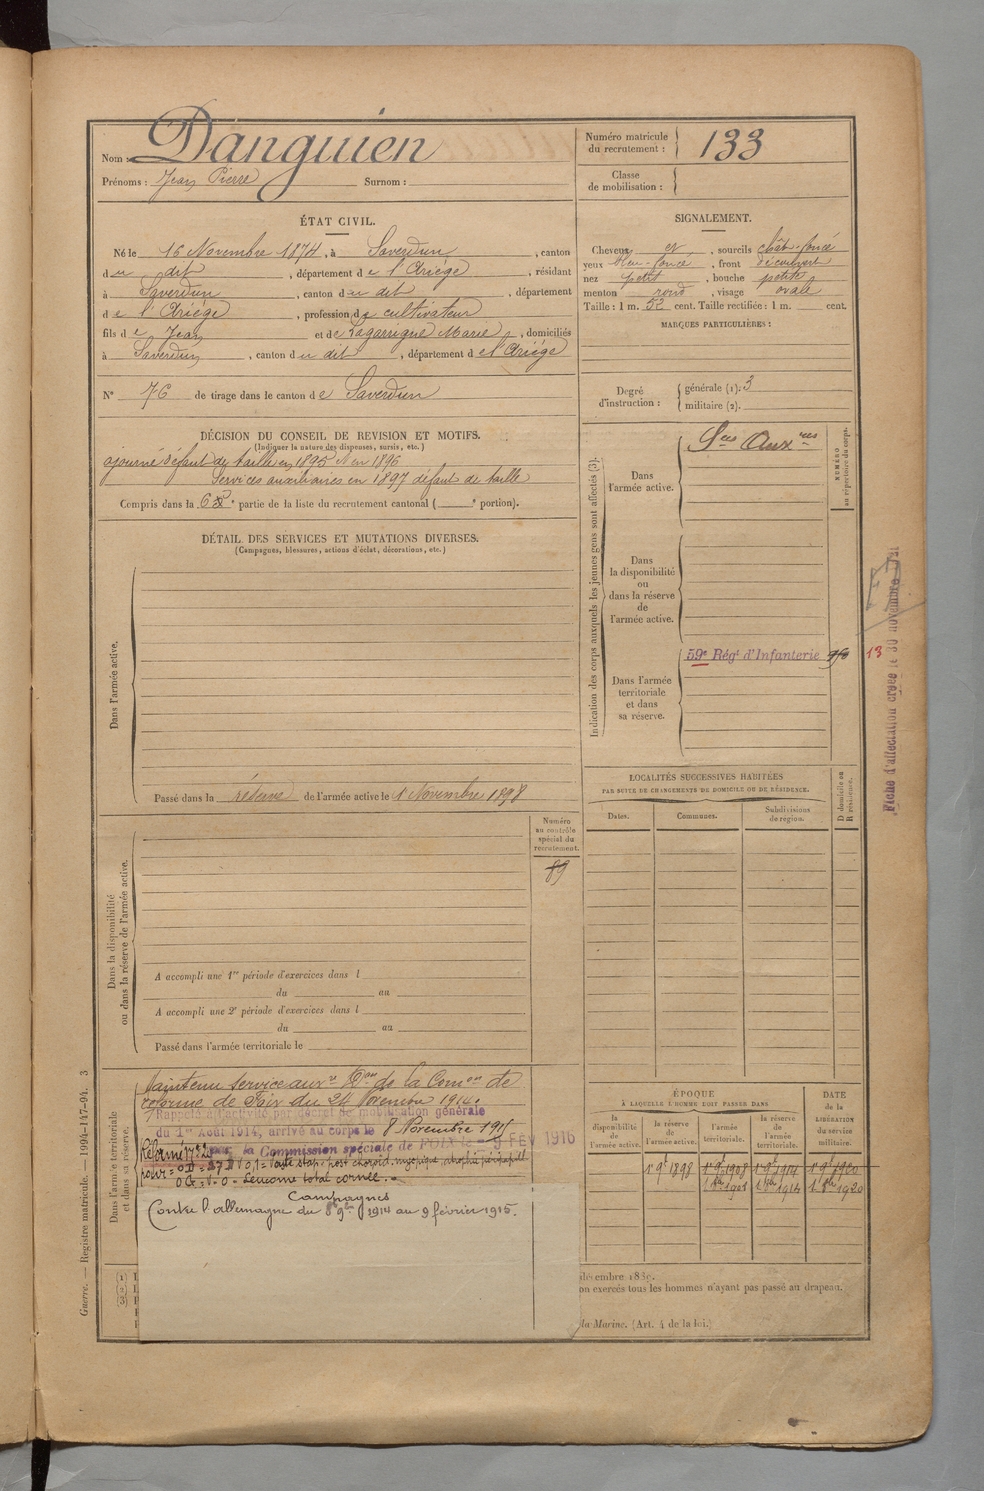 Nom : Danguien
Prénoms : Jean Pierre Surnom :
Numéro matricule du recrutement : 133
Classe de mobilisation :
ÉTAT CIVIL.
Né le 16 Novembre 1874, à Saverdun, canton
du dit, département de l'Ariège, résidant
à Saverdun, canton du dit, département
de l'Ariège, profession de cultivateur
fils de Jean et de Lagarrigue Marie, domiciliés
à Saverdun, canton du dit, département de l'Ariège
N° 76 de tirage dans le canton de Saverdun
SIGNALEMENT.
Cheveux et, sourcils chât-foncé
yeux bleu-foncé, front découvert
nez petit, bouche petite
menton rond, visage ovale
Taille : 1 m. 52 cent. Taille rectifiée : 1 m. cent.
MARQUES PARTICULIÈRES :
Degré d'instruction : générale (1): 3
militaire (2).
DÉCISION DU CONSEIL DE REVISION ET MOTIFS.
(Indiquer la nature des dispenses, sursis, etc.)
ajourné défaut de taille en 1895 et en 1896
Services auxiliaires en 1897 défaut de taille
Compris dans la 6e partie de la liste du recrutement cantonal ( e portion).
DÉTAIL DES SERVICES ET MUTATIONS DIVERSES.
(Campagnes, blessures, actions d'éclat, décorations, etc.)
Dans l'armée active.
Passé dans la réserve de l'armée active le 1 Novembre 1898
Indication des corps auxquels les jeunes gens sont affectés (3).
NUMÉRO au répertoire du corps.
Dans l'armée active.
Sces Auxres
Dans la disponibilité ou dans la réserve de l'armée active.
Dans l'armée territoriale et dans sa réserve.
59e Régt d'Infanterie
13
Fiche d'affectation créée le 30 novembre
LOCALITÉS SUCCESSIVES HABITÉES
PAR SUITE DE CHANGEMENTS DE DOMICILE OU DE RÉSIDENCE.
Dates. Communes. Subdivisions de région.
D domicile ou R résidence.
Numéro au contrôle spécial du recrutement.
89
Dans la disponibilité ou dans la réserve de l'armée active.
A accompli une 1re période d'exercices dans l
du au
A accompli une 2e période d'exercices dans l
du au
Passé dans l'armée territoriale le
Dans l'armée territoriale et dans sa réserve.
Maintenu service auxre Don de la Comon de
réforme de Foix du 24 Novembre 1914.
Rappelé à l'activité par décret de mobilisation générale
du 1er Août 1914, arrivé au corps le 8 Novembre 1915
Réformé N° 2 par la Commission spéciale de FOIX le 9 FEV 1916
OG = V = 0 - Leucome total cornée.
Campagnes
Contre l'allemagne du 8 9bre 1914 au 9 février 1915.
ÉPOQUE
À LAQUELLE L'HOMME DOIT PASSER DANS
la disponibilité de l'armée active.
la réserve de l'armée active.
l'armée territoriale.
la réserve de l'armée territoriale.
DATE de la LIBÉRATION du service militaire.
1 9bre 1898 1 9bre 1908 1 9bre 1914 1 9bre 1920
1 8bre 1908 1 8bre 1914 1 8bre 1920
décembre 1889.
on exercés tous les hommes n'ayant pas passé au drapeau.
la Marine. (Art. 4 de la loi.)
Guerre. — Registre matricule. — 1994-147-94. 3